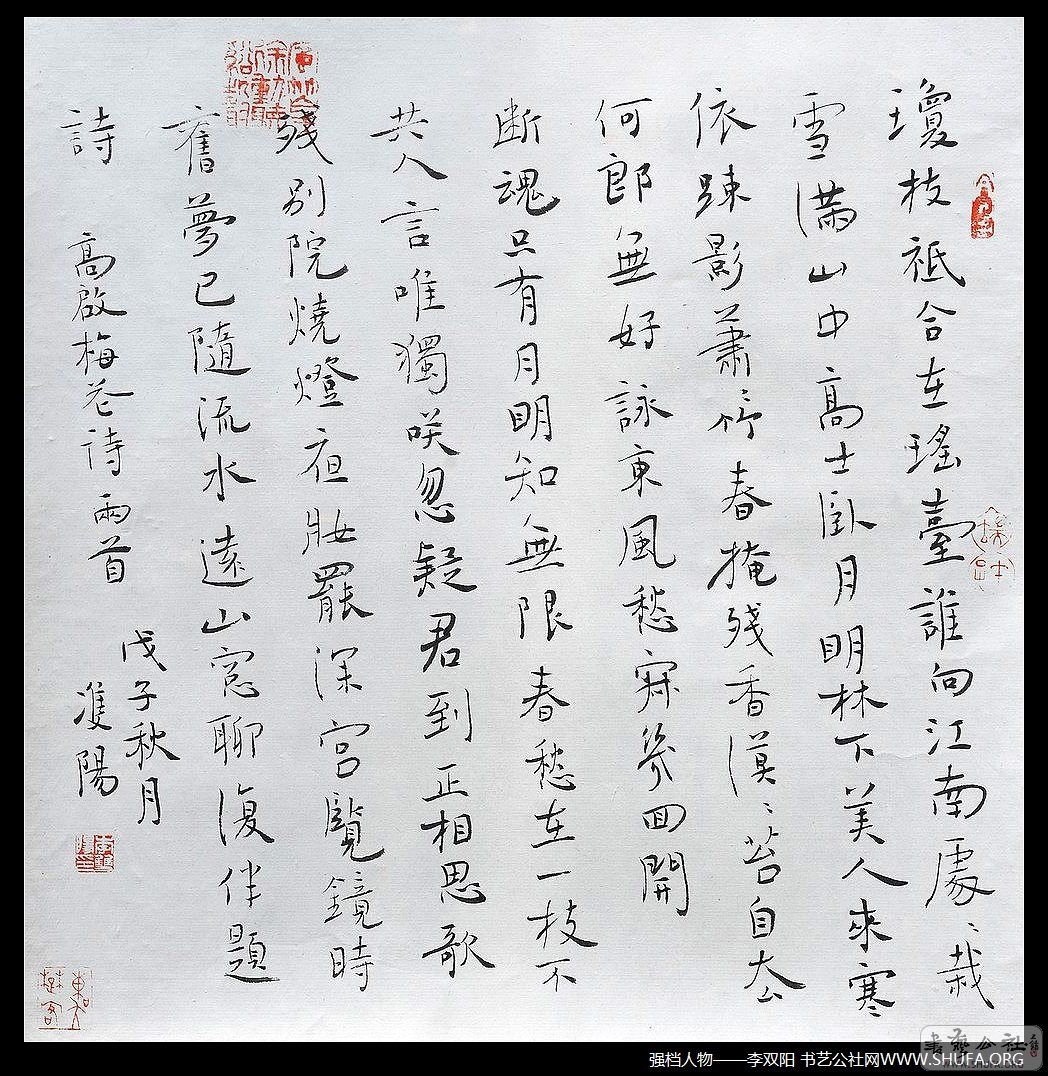 瓊枝祇合在瑤臺誰向江南處〻栽
雪滿山中高士卧月明林下美人來寒
依踈影蕭〻竹春掩殘香漠〻苔自去
何郎無好詠東風愁寂幾回開
断魂只有月明知無限春愁在一枝不
共人言唯獨咲忽疑君到正相思歌
殘別院燒燈夜妝罷深宮覽鏡時
舊夢已隨流水遠山窓聊復伴題
詩 高啟梅花詩兩首
戊子秋月
雙陽
書藝公社
强档人物——李双阳 书艺公社网WWW.SHUFA.ORG